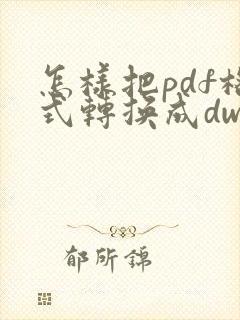 怎樣把pdf格
式轉換成dw
郁所錦